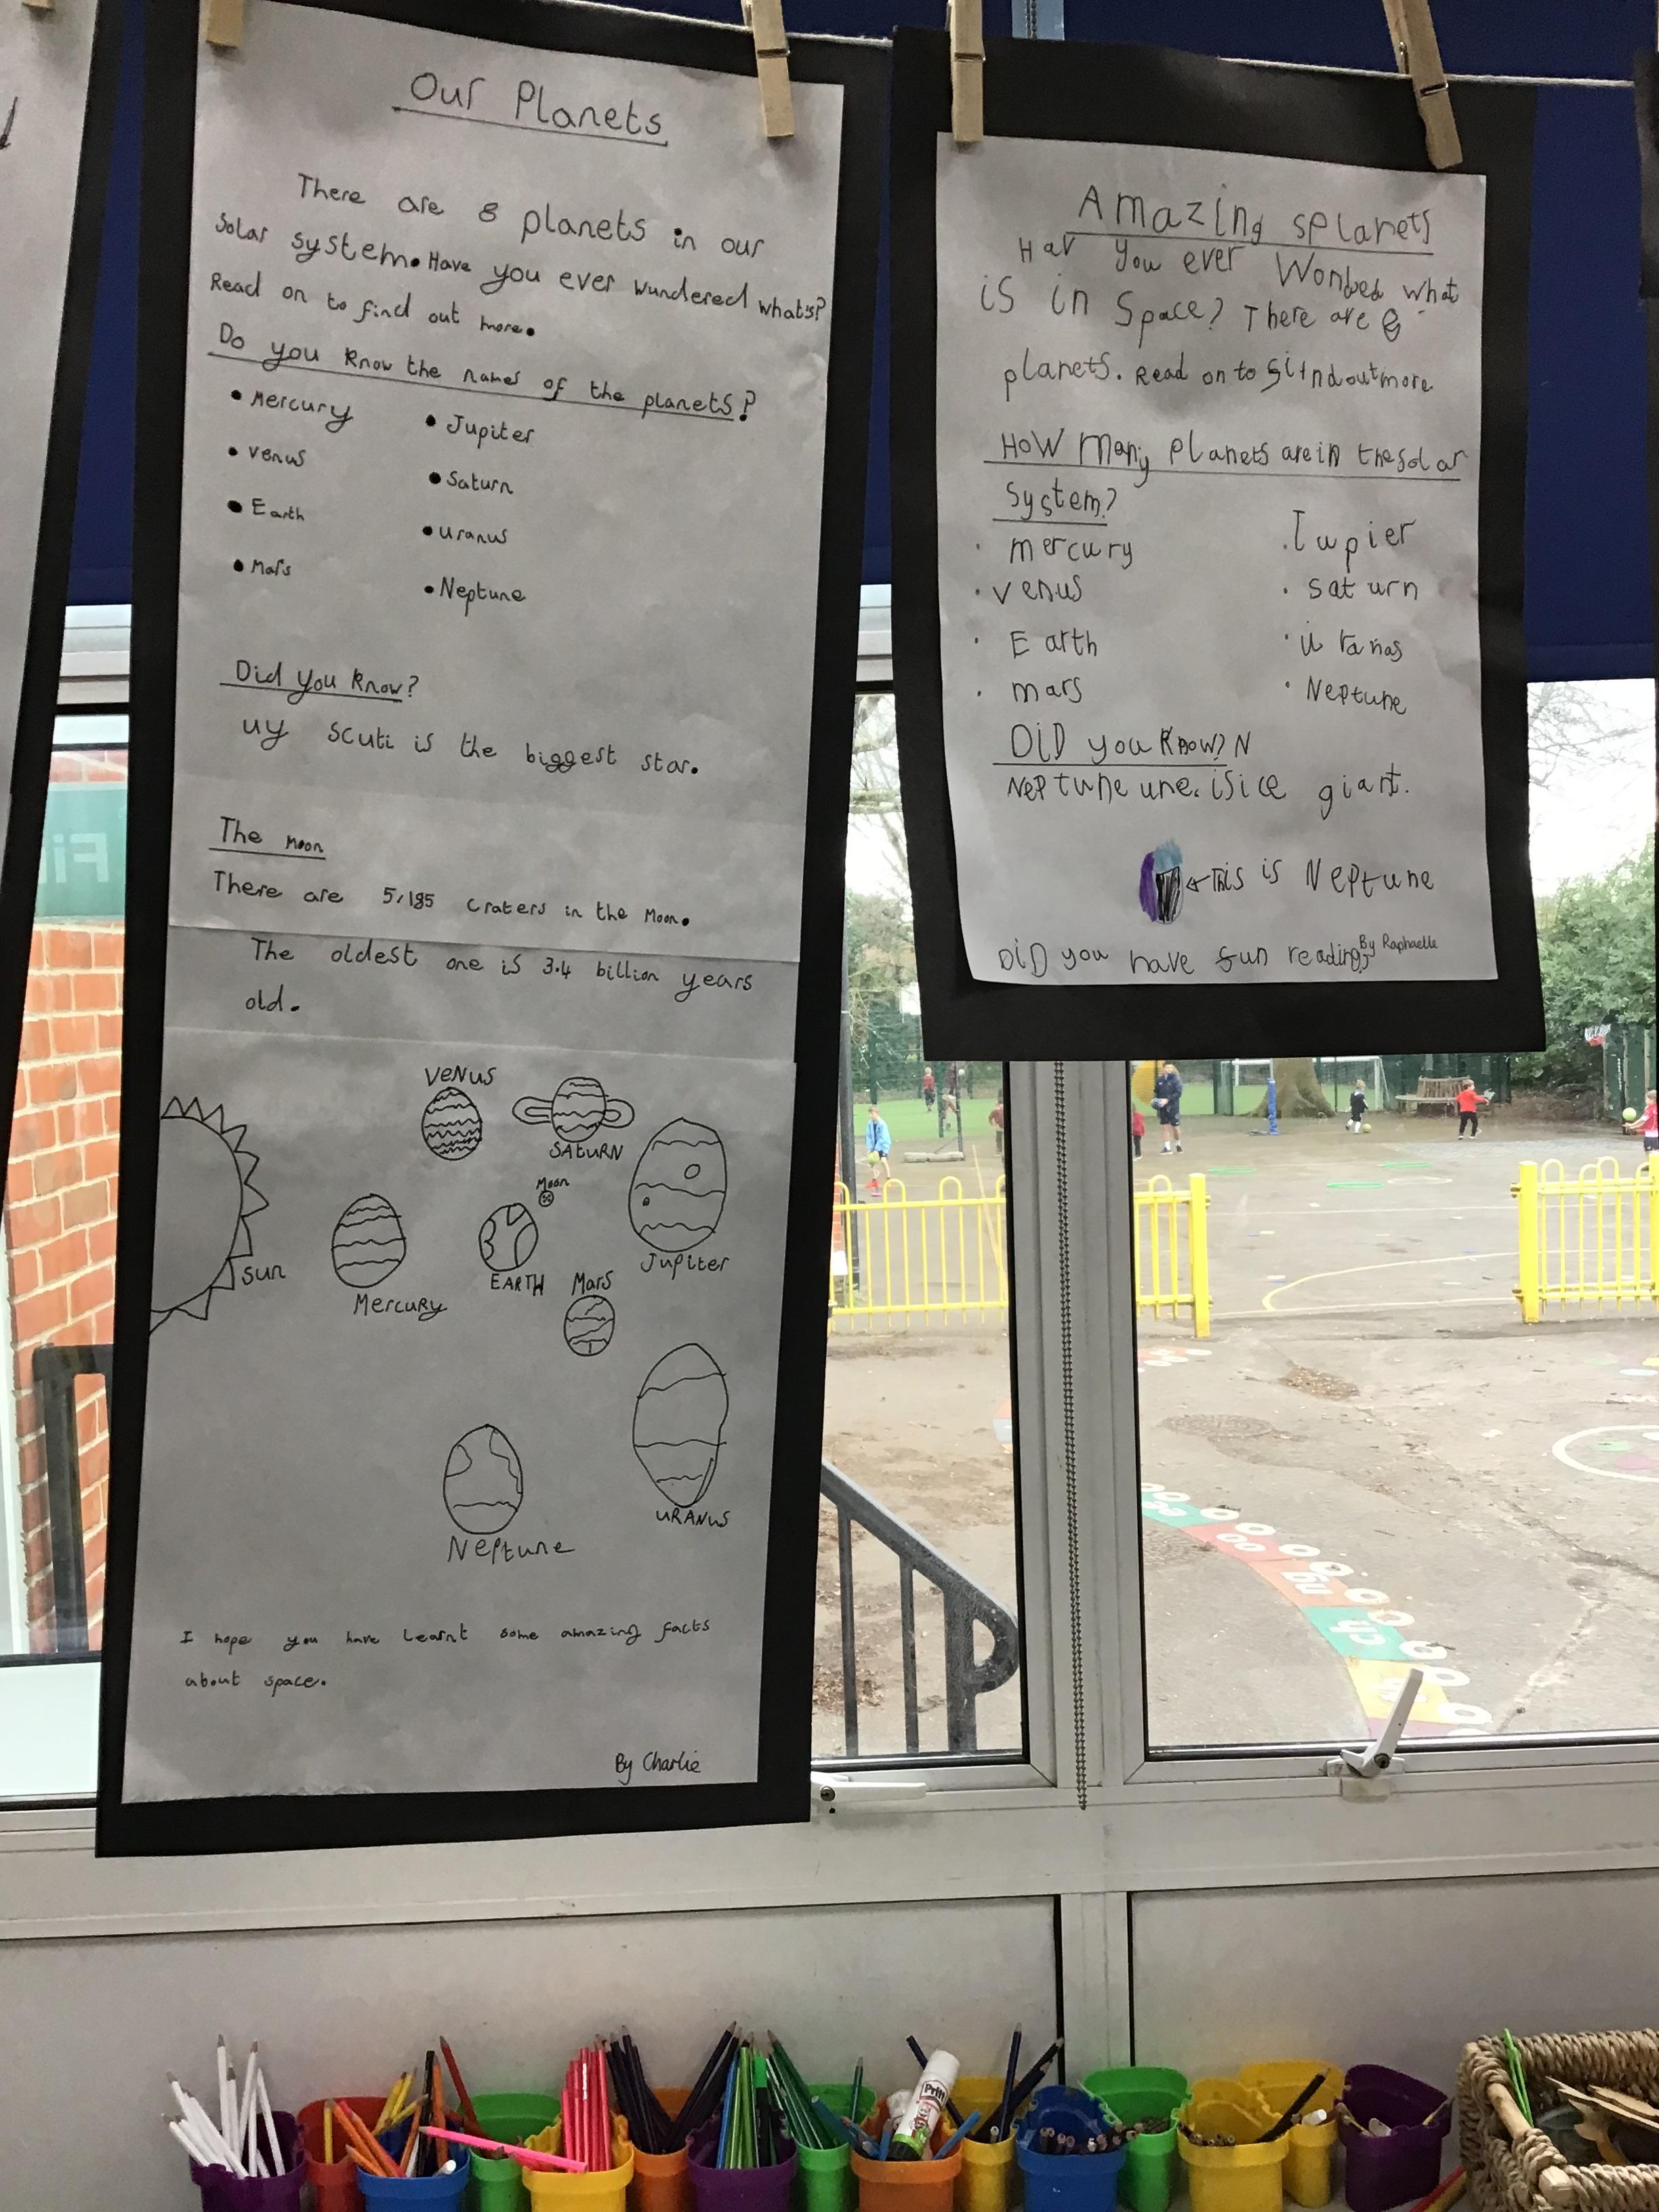 Our Planets
There are 8 planets in our
Solar system. Have you ever wundered what's?
Read on to find out more.
Do you know the names of the planets?
• Mercury
• Venus
• Earth
• Mars
• Jupiter
• Saturn
• Uranus
• Neptune
Did you know?
uy scuti is the biggest star.
The Moon
There are 5,185 craters in the Moon.
The oldest one is 3.4 billion years
old.
VENUS
SATURN
Moon
Jupiter
SUN
EARTH
Mars
Mercury
URANUS
Neptune
I hope you have learnt some amazing facts
about space.
By Charlie
Amazing splanets
Hav you ever Wonded what
is in Space? There are 8
planets. Read on to out more
How many planets are in the solar
system?
• mercury
• venus
• Earth
• mars
• Iupier
• saturn
• uranas
• Neptune
DiD you know? N
Neptune une. is ice giant.
This is Neptune
DiD you have fun reading?
By Raphaelle
Fi
ng
ch
Prit